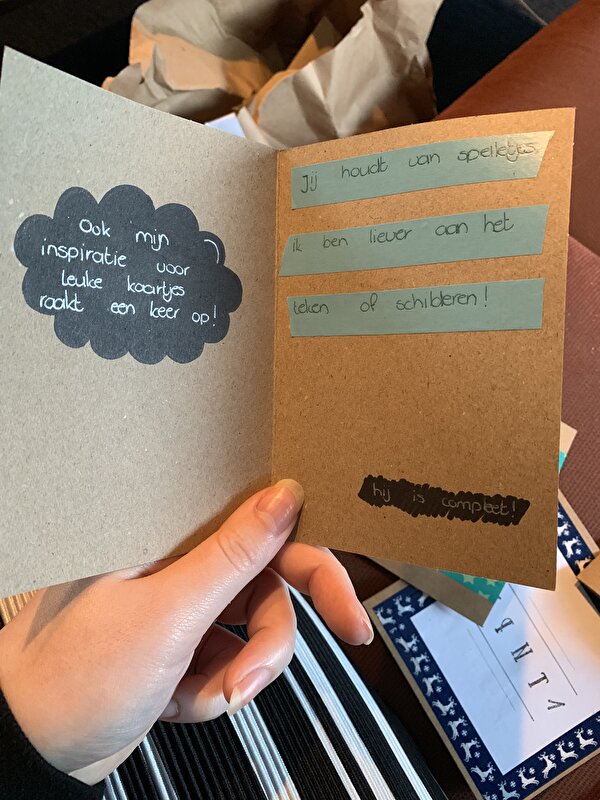 Ook mijn
inspiratie voor
leuke kaartjes
raakt een keer op!
Jij houdt van spelletjes
ik ben liever aan het
teken of schilderen!
hij is compleet!